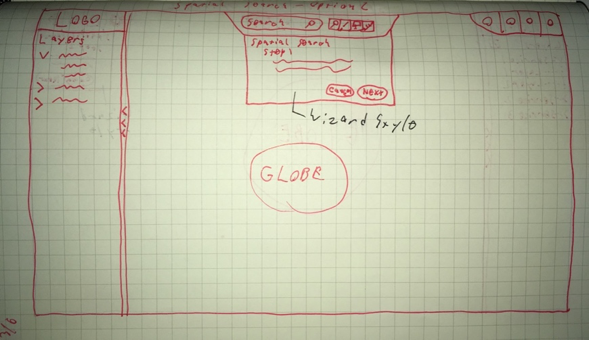 Spatial Search - Option 2
LOGO
Search
Layers
Spatial Search
Step 1
Cancel
Next
Wizard Style
GLOBE
3/6